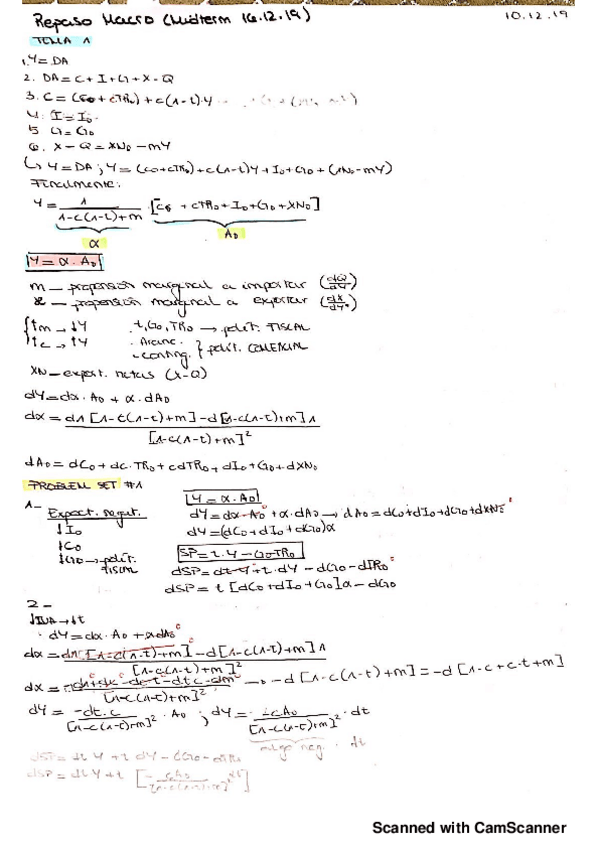 Repaso Macro (Midterm 16.12.19) 10.12.19
TEMA 1
1. Y = DA
2. DA = C + I + G + X - Q
3. C = (C0 + cTR0) + c(1-t)·Y
4. I = I0
5 G = G0
6. X - Q = XN0 - mY
↳ Y = DA ; Y = (C0 + cTR0) + c(1-t)Y + I0 + G0 + (XN0 - mY)
Finalmente:
Y = 1 / 1-c(1-t)+m · [C0 + cTR0 + I0 + G0 + XN0]
α A0
Y = α · A0
m — propensión marginal a importar (dQ/dY)
x — propensión marginal a exportar (dX/dY*)
tm → ↓Y . t, G0, TR0 → polít. FISCAL
tc → ↑Y . Aranc. } polít. COMERCIAL
- conting.
XN — export. netas (X-Q)
dY = dα · A0 + α · dA0
dα = d1 [1-c(1-t)+m] - d[1-c(1-t)+m] 1
[1-c(1-t)+m]²
dA0 = dC0 + dc·TR0 + cdTR0 + dI0 + G0 + dXN0
PROBLEM SET #1
Y = α · A0
1- Expect. negat. dY = dα·A0 + α·dA0 → dA0 = dC0 + dI0 + dG0 + dXN0
↓I0 dY = (dC0 + dI0 + dG0)α
↓C0 SP = t·Y - G0 - TR0
↓G0 → polít. fiscal dSP = dt·Y + t·dY - dG0 - dTR0
dSP = t [dC0 + dI0 + G0]α - dG0
2-
↓IVA → ↓t
· dY = dα · A0 + αdA0
dα = d1 [1-c(1-t)+m] - d[1-c(1-t)+m] 1
[1-c(1-t)+m]²
dα = -d1+dc-dc·t-dt·c-dm → -d [1-c(1-t)+m] = -d [1-c+c·t+m]
[1-c(1-t)+m]²
dY = -dt·c / [1-c(1-t)+m]² · A0 ; dY = -cA0 / [1-c(1-t)+m]² · dt
algo neg. · dt
dSP = dt Y + t dY - dG0 - dTR0
dSP = dt Y + t
Scanned with CamScanner